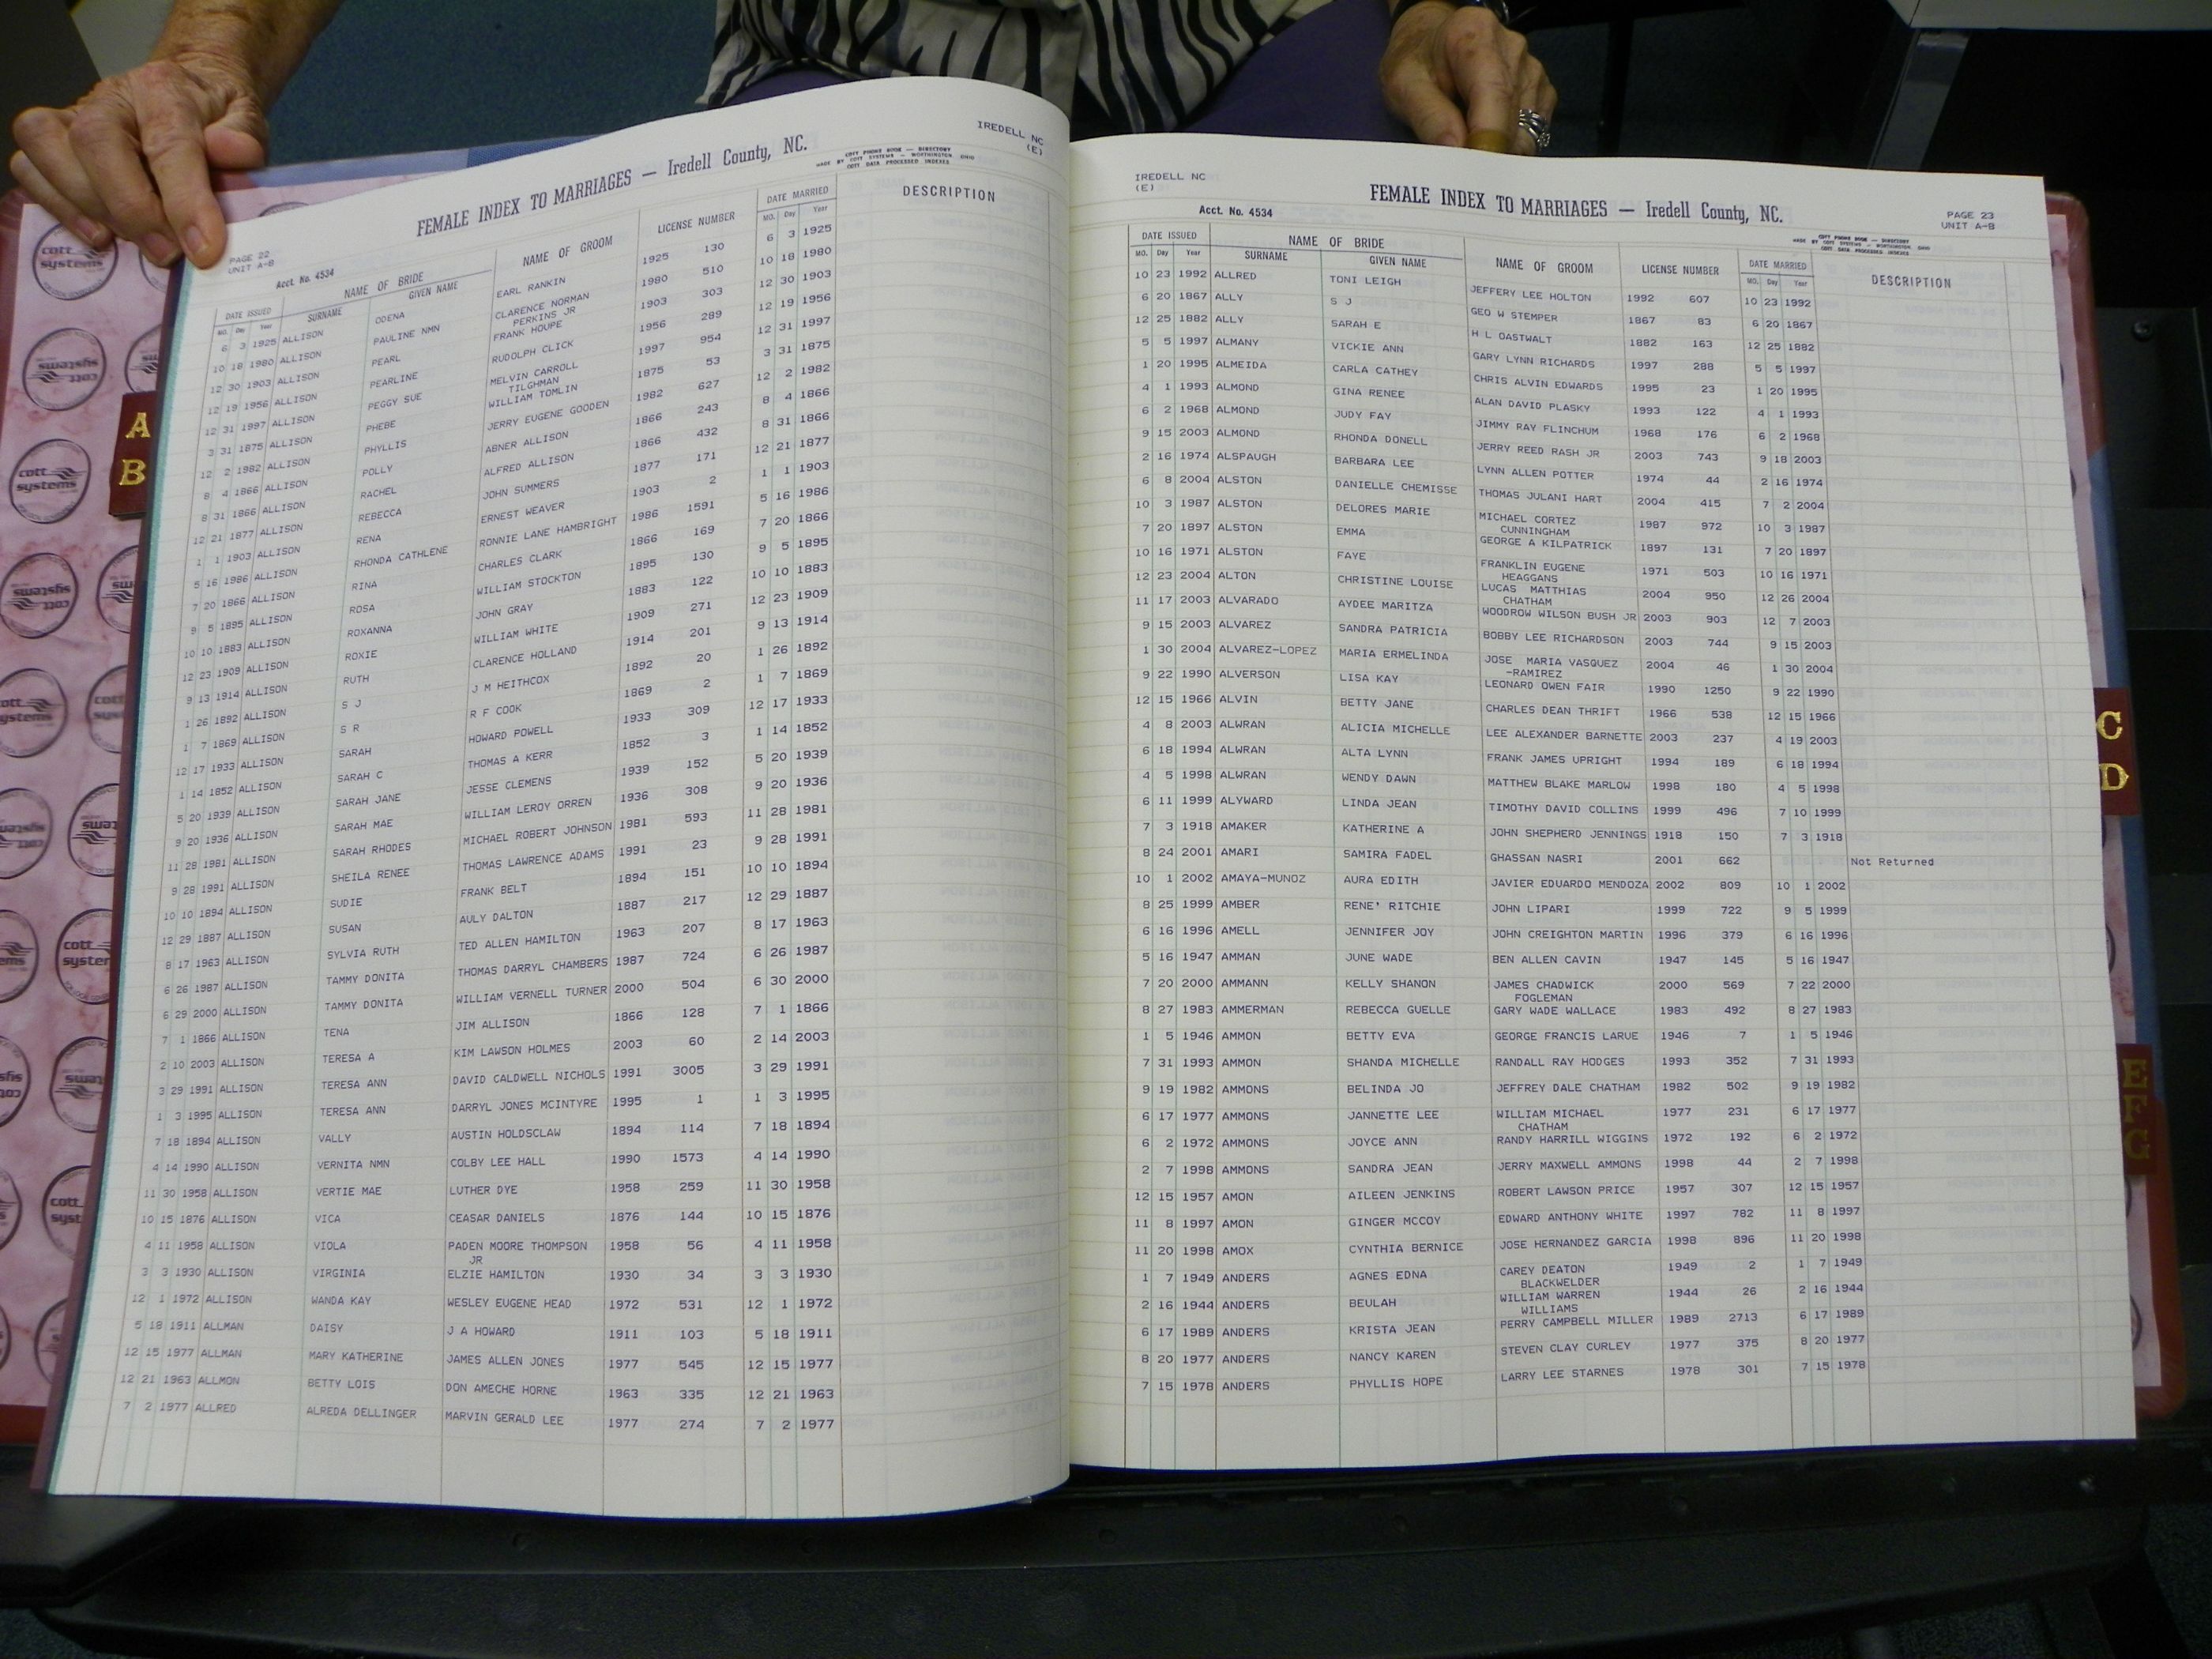 IREDELL NC
(E)
FEMALE INDEX TO MARRIAGES — Iredell County, NC.
COTT PHONE BOOK — DIRECTORY
MADE BY COTT SYSTEMS — WORTHINGTON OHIO
COTT DATA PROCESSED INDEXES
PAGE 22
UNIT A-B
Acct. No. 4534
DATE ISSUED NAME OF BRIDE NAME OF GROOM LICENSE NUMBER DATE MARRIED DESCRIPTION
MO. Day Year SURNAME GIVEN NAME MO. Day Year
6 3 1925 ALLISON ODENA EARL RANKIN 1925 130 6 3 1925
10 18 1980 ALLISON PAULINE NMN CLARENCE NORMAN 1980 510 10 18 1980
PERKINS JR
12 30 1903 ALLISON PEARL FRANK HOUPE 1903 303 12 30 1903
12 19 1956 ALLISON PEARLINE RUDOLPH CLICK 1956 289 12 19 1956
12 31 1997 ALLISON PEGGY SUE MELVIN CARROLL 1997 954 12 31 1997
TILGHMAN
3 31 1875 ALLISON PHEBE WILLIAM TOMLIN 1875 53 3 31 1875
12 2 1982 ALLISON PHYLLIS JERRY EUGENE GOODEN 1982 627 12 2 1982
8 4 1866 ALLISON POLLY ABNER ALLISON 1866 243 8 4 1866
8 31 1866 ALLISON RACHEL ALFRED ALLISON 1866 432 8 31 1866
12 21 1877 ALLISON REBECCA JOHN SUMMERS 1877 171 12 21 1877
1 1 1903 ALLISON RENA ERNEST WEAVER 1903 2 1 1 1903
5 16 1986 ALLISON RHONDA CATHLENE RONNIE LANE HAMBRIGHT 1986 1591 5 16 1986
7 20 1866 ALLISON RINA CHARLES CLARK 1866 169 7 20 1866
9 5 1895 ALLISON ROSA WILLIAM STOCKTON 1895 130 9 5 1895
10 10 1883 ALLISON ROXANNA JOHN GRAY 1883 122 10 10 1883
12 23 1909 ALLISON ROXIE WILLIAM WHITE 1909 271 12 23 1909
9 13 1914 ALLISON RUTH CLARENCE HOLLAND 1914 201 9 13 1914
1 26 1892 ALLISON S J J M HEITHCOX 1892 20 1 26 1892
1 7 1869 ALLISON S R R F COOK 1869 2 1 7 1869
12 17 1933 ALLISON SARAH HOWARD POWELL 1933 309 12 17 1933
1 14 1852 ALLISON SARAH C THOMAS A KERR 1852 3 1 14 1852
5 20 1939 ALLISON SARAH JANE JESSE CLEMENS 1939 152 5 20 1939
9 20 1936 ALLISON SARAH MAE WILLIAM LEROY ORREN 1936 308 9 20 1936
11 28 1981 ALLISON SARAH RHODES MICHAEL ROBERT JOHNSON 1981 593 11 28 1981
9 28 1991 ALLISON SHEILA RENEE THOMAS LAWRENCE ADAMS 1991 23 9 28 1991
10 10 1894 ALLISON SUDIE FRANK BELT 1894 151 10 10 1894
12 29 1887 ALLISON SUSAN AULY DALTON 1887 217 12 29 1887
8 17 1963 ALLISON SYLVIA RUTH TED ALLEN HAMILTON 1963 207 8 17 1963
6 26 1987 ALLISON TAMMY DONITA THOMAS DARRYL CHAMBERS 1987 724 6 26 1987
6 29 2000 ALLISON TAMMY DONITA WILLIAM VERNELL TURNER 2000 504 6 30 2000
7 1 1866 ALLISON TENA JIM ALLISON 1866 128 7 1 1866
2 10 2003 ALLISON TERESA A KIM LAWSON HOLMES 2003 60 2 14 2003
3 29 1991 ALLISON TERESA ANN DAVID CALDWELL NICHOLS 1991 3005 3 29 1991
1 3 1995 ALLISON TERESA ANN DARRYL JONES MCINTYRE 1995 1 1 3 1995
7 18 1894 ALLISON VALLY AUSTIN HOLDSCLAW 1894 114 7 18 1894
4 14 1990 ALLISON VERNITA NMN COLBY LEE HALL 1990 1573 4 14 1990
11 30 1958 ALLISON VERTIE MAE LUTHER DYE 1958 259 11 30 1958
10 15 1876 ALLISON VICA CEASAR DANIELS 1876 144 10 15 1876
4 11 1958 ALLISON VIOLA PADEN MOORE THOMPSON 1958 56 4 11 1958
JR
3 3 1930 ALLISON VIRGINIA ELZIE HAMILTON 1930 34 3 3 1930
12 1 1972 ALLISON WANDA KAY WESLEY EUGENE HEAD 1972 531 12 1 1972
5 18 1911 ALLMAN DAISY J A HOWARD 1911 103 5 18 1911
12 15 1977 ALLMAN MARY KATHERINE JAMES ALLEN JONES 1977 545 12 15 1977
12 21 1963 ALLMON BETTY LOIS DON AMECHE HORNE 1963 335 12 21 1963
7 2 1977 ALLRED ALREDA DELLINGER MARVIN GERALD LEE 1977 274 7 2 1977
IREDELL NC
(E)
FEMALE INDEX TO MARRIAGES — Iredell County, NC.
Acct. No. 4534
PAGE 23
UNIT A-B
COTT PHONE BOOK — DIRECTORY
MADE BY COTT SYSTEMS — WORTHINGTON OHIO
COTT DATA PROCESSED INDEXES
DATE ISSUED NAME OF BRIDE NAME OF GROOM LICENSE NUMBER DATE MARRIED DESCRIPTION
MO. Day Year SURNAME GIVEN NAME MO. Day Year
10 23 1992 ALLRED TONI LEIGH JEFFERY LEE HOLTON 1992 607 10 23 1992
6 20 1867 ALLY S J GEO W STEMPER 1867 83 6 20 1867
12 25 1882 ALLY SARAH E H L OASTWALT 1882 163 12 25 1882
5 5 1997 ALMANY VICKIE ANN GARY LYNN RICHARDS 1997 288 5 5 1997
1 20 1995 ALMEIDA CARLA CATHEY CHRIS ALVIN EDWARDS 1995 23 1 20 1995
4 1 1993 ALMOND GINA RENEE ALAN DAVID PLASKY 1993 122 4 1 1993
6 2 1968 ALMOND JUDY FAY JIMMY RAY FLINCHUM 1968 176 6 2 1968
9 15 2003 ALMOND RHONDA DONELL JERRY REED RASH JR 2003 743 9 18 2003
2 16 1974 ALSPAUGH BARBARA LEE LYNN ALLEN POTTER 1974 44 2 16 1974
6 8 2004 ALSTON DANIELLE CHEMISSE THOMAS JULANI HART 2004 415 7 2 2004
10 3 1987 ALSTON DELORES MARIE MICHAEL CORTEZ 1987 972 10 3 1987
CUNNINGHAM
7 20 1897 ALSTON EMMA GEORGE A KILPATRICK 1897 131 7 20 1897
10 16 1971 ALSTON FAYE FRANKLIN EUGENE 1971 503 10 16 1971
HEAGGANS
12 23 2004 ALTON CHRISTINE LOUISE LUCAS MATTHIAS 2004 950 12 26 2004
CHATHAM
11 17 2003 ALVARADO AYDEE MARITZA WOODROW WILSON BUSH JR 2003 903 12 7 2003
9 15 2003 ALVAREZ SANDRA PATRICIA BOBBY LEE RICHARDSON 2003 744 9 15 2003
1 30 2004 ALVAREZ-LOPEZ MARIA ERMELINDA JOSE MARIA VASQUEZ 2004 46 1 30 2004
-RAMIREZ
9 22 1990 ALVERSON LISA KAY LEONARD OWEN FAIR 1990 1250 9 22 1990
12 15 1966 ALVIN BETTY JANE CHARLES DEAN THRIFT 1966 538 12 15 1966
4 8 2003 ALWRAN ALICIA MICHELLE LEE ALEXANDER BARNETTE 2003 237 4 19 2003
6 18 1994 ALWRAN ALTA LYNN FRANK JAMES UPRIGHT 1994 189 6 18 1994
4 5 1998 ALWRAN WENDY DAWN MATTHEW BLAKE MARLOW 1998 180 4 5 1998
6 11 1999 ALYWARD LINDA JEAN TIMOTHY DAVID COLLINS 1999 496 7 10 1999
7 3 1918 AMAKER KATHERINE A JOHN SHEPHERD JENNINGS 1918 150 7 3 1918
8 24 2001 AMARI SAMIRA FADEL GHASSAN NASRI 2001 662 Not Returned
10 1 2002 AMAYA-MUNOZ AURA EDITH JAVIER EDUARDO MENDOZA 2002 809 10 1 2002
8 25 1999 AMBER RENE' RITCHIE JOHN LIPARI 1999 722 9 5 1999
6 16 1996 AMELL JENNIFER JOY JOHN CREIGHTON MARTIN 1996 379 6 16 1996
5 16 1947 AMMAN JUNE WADE BEN ALLEN CAVIN 1947 145 5 16 1947
7 20 2000 AMMANN KELLY SHANON JAMES CHADWICK 2000 569 7 22 2000
FOGLEMAN
8 27 1983 AMMERMAN REBECCA GUELLE GARY WADE WALLACE 1983 492 8 27 1983
1 5 1946 AMMON BETTY EVA GEORGE FRANCIS LARUE 1946 7 1 5 1946
7 31 1993 AMMON SHANDA MICHELLE RANDALL RAY HODGES 1993 352 7 31 1993
9 19 1982 AMMONS BELINDA JO JEFFREY DALE CHATHAM 1982 502 9 19 1982
6 17 1977 AMMONS JANNETTE LEE WILLIAM MICHAEL 1977 231 6 17 1977
CHATHAM
6 2 1972 AMMONS JOYCE ANN RANDY HARRILL WIGGINS 1972 192 6 2 1972
2 7 1998 AMMONS SANDRA JEAN JERRY MAXWELL AMMONS 1998 44 2 7 1998
12 15 1957 AMON AILEEN JENKINS ROBERT LAWSON PRICE 1957 307 12 15 1957
11 8 1997 AMON GINGER MCCOY EDWARD ANTHONY WHITE 1997 782 11 8 1997
11 20 1998 AMOX CYNTHIA BERNICE JOSE HERNANDEZ GARCIA 1998 896 11 20 1998
1 7 1949 ANDERS AGNES EDNA CAREY DEATON 1949 2 1 7 1949
BLACKWELDER
2 16 1944 ANDERS BEULAH WILLIAM WARREN 1944 26 2 16 1944
WILLIAMS
6 17 1989 ANDERS KRISTA JEAN PERRY CAMPBELL MILLER 1989 2713 6 17 1989
8 20 1977 ANDERS NANCY KAREN STEVEN CLAY CURLEY 1977 375 8 20 1977
7 15 1978 ANDERS PHYLLIS HOPE LARRY LEE STARNES 1978 301 7 15 1978
A
B
C
D
E
F
G
cott
systems